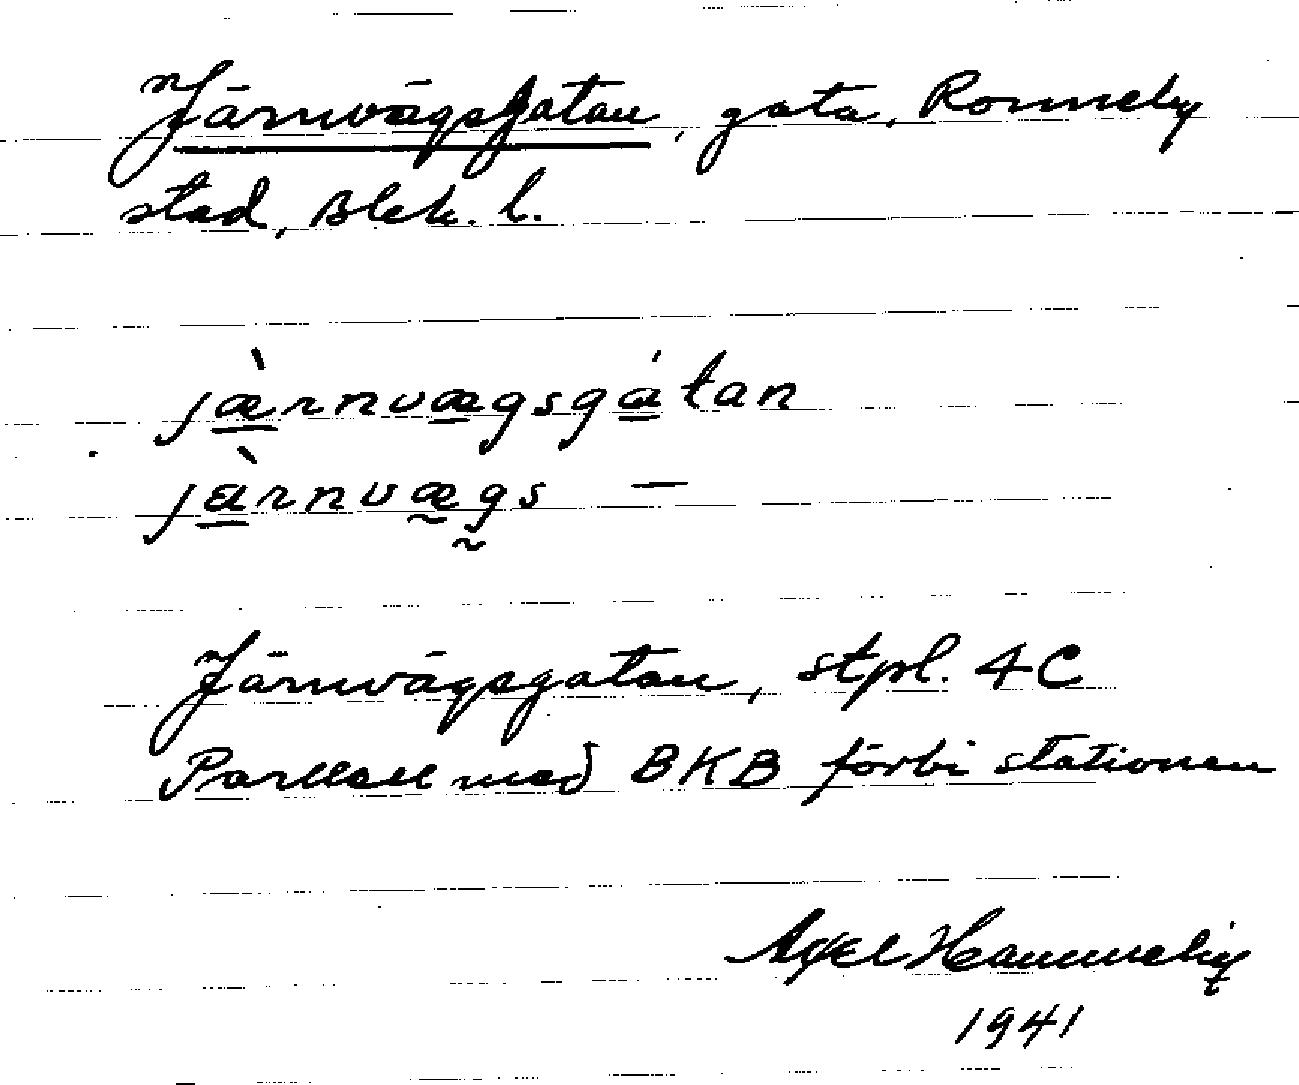 Järnvägsgatan, gata, Ronneby
stad, Blek. l.
jæ̀rnvægsgátan
jæ̀rnvægs —
Järnvägsgatan, stpl. 4C
Parllell med BKB förbi stationen
Axel
1941